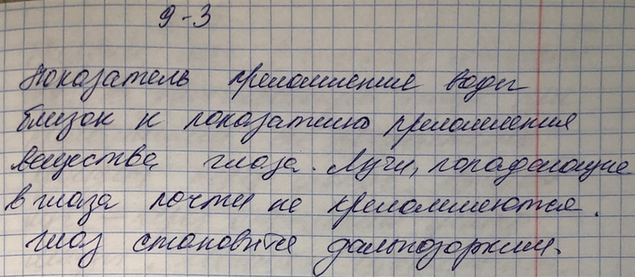 9-3
Показатель преломление воды
близок к показателю преломления
вещества глаза. Лучи, попадающие
в глаза почти не преломляются.
Глаз становится дальнозорким.